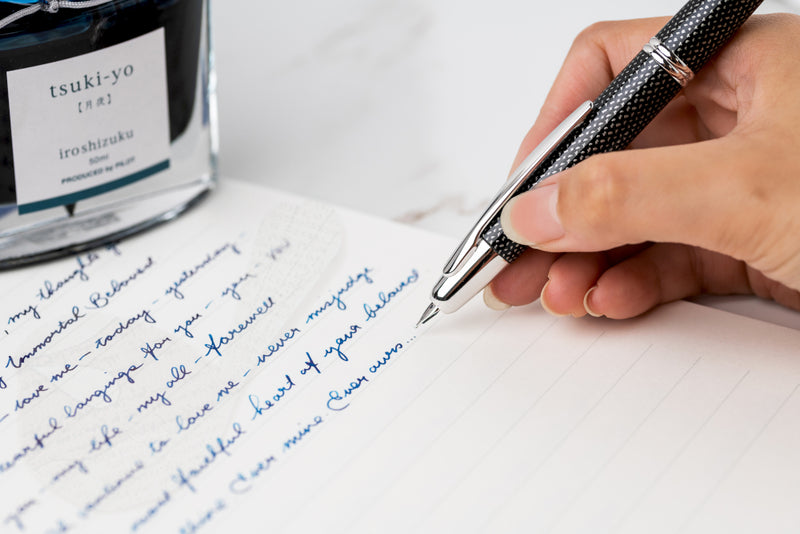 tsuki-yo
【月夜】
iroshizuku
50ml
PRODUCED by PILOT
, my thoughts
Immortal Beloved
love me - today - yesterday -
longings for you - you -
- my life - my all - farewell
continue to love me - never misjudge
most faithful heart of your beloved
Ever mine. Ever ours...